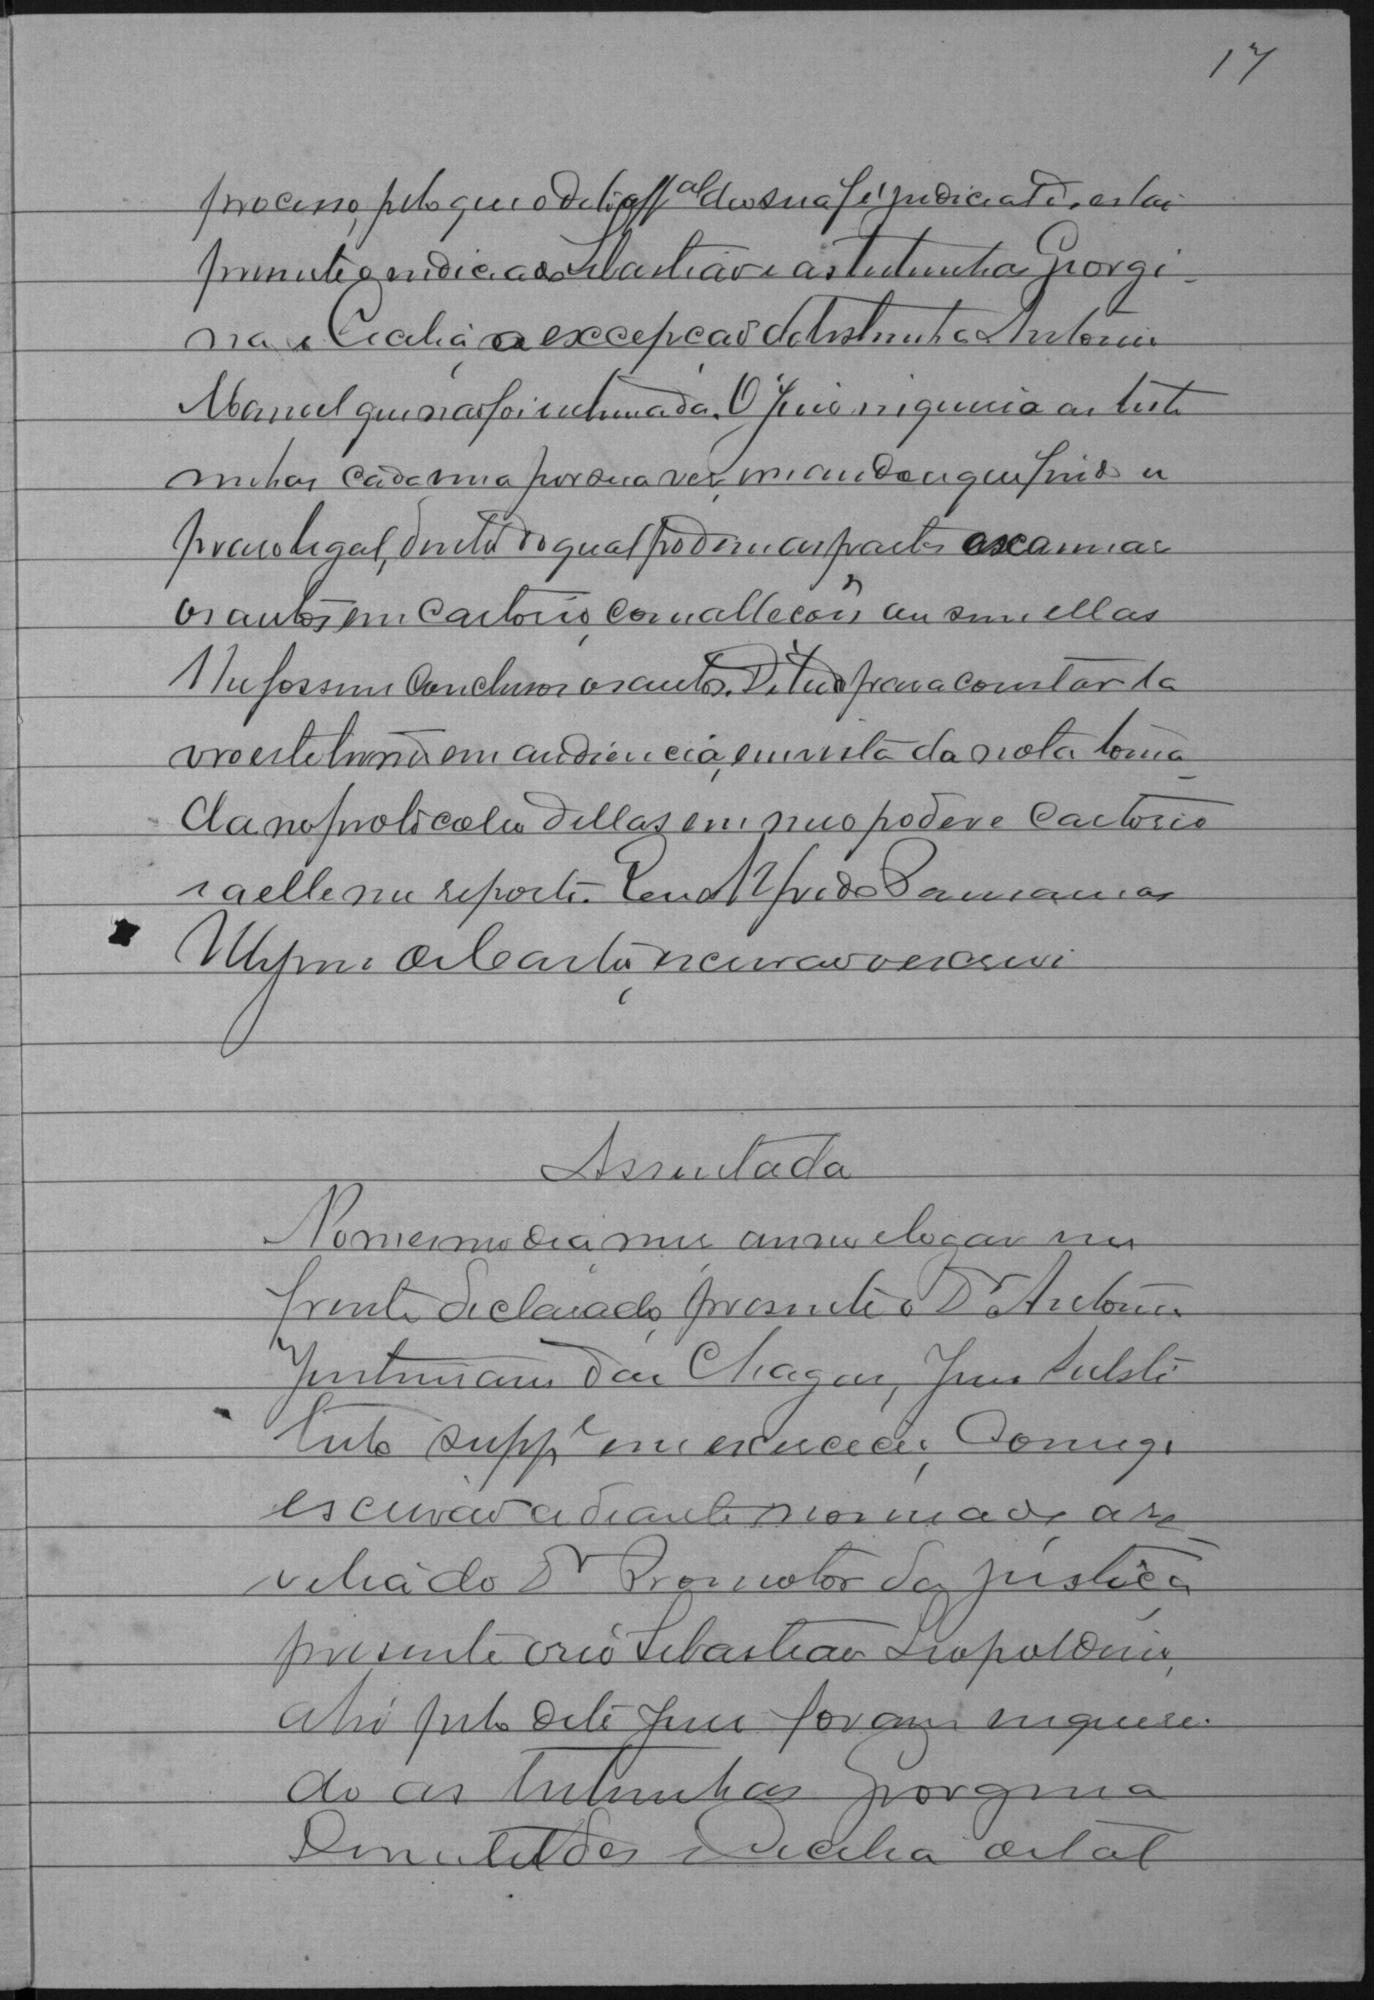 17
processo, pelo que o dito offal deu sua fé judicial de estar
presente o indiciado Sebastião e as testemunhas Georgi-
na e Cecilia a excepção da testemunha Antonio
Manoel que não foi intimada. O Juiz inqueria as teste
munhas cada uma por sua vez, mandou que findo o
praso legal, dentro do qual podem as partes examinar
os autos em Cartorio, com allecões ou sem ellas
lhe fossem conclusos os autos. De tudo para constar la
vro este termo em audiencia, em vista da nota toma
da no protocolo dellas em meo poder e Cartorio
e a elle me reporto. Eu Alfredo
de Castro, escrivão o escrevi
Assentada
No mesmo dia, mez, anno e logar no
frente declarado, presente o Dr Antonio
Justiniano das Chagas, Juiz Substi
tuto suppe em exercicio, Comigo
escrivão adiante nomeado, a re
velia do Dr Promotor da Justiça
presente o réo Sebastião Leopoldino,
ahi pelo dito Juiz foram inqueri
do as testemunhas Georgina
Benedicta e Cecilia de tal